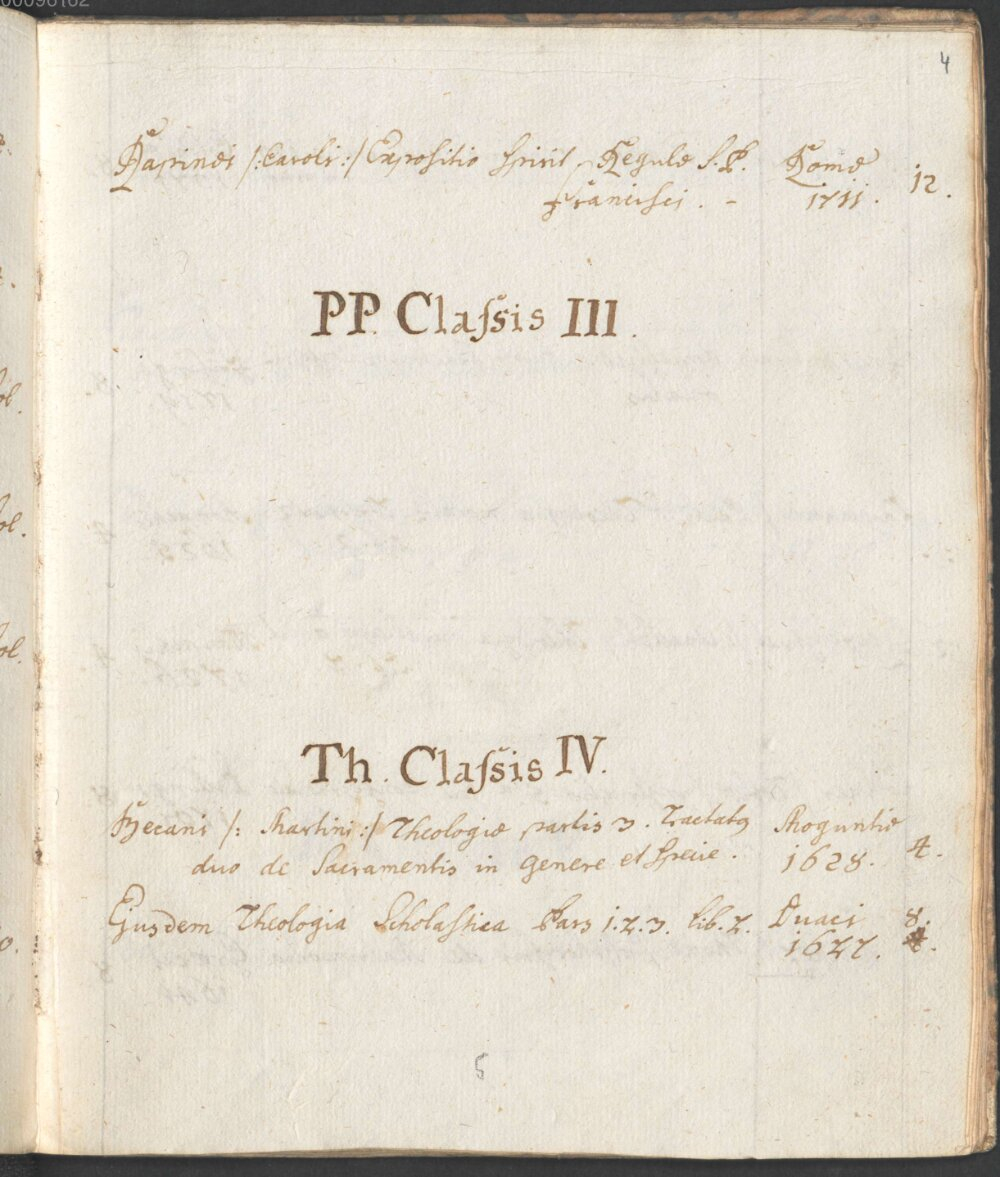 00096162
4
Rapinei /: Caroli :/ Expositio Spirit. Regulæ S. P. Romæ 12.
Francisci. - 1711.
PP. Claſsis III.
Th. Claſsis IV.
Becani /: Martini :/ Theologiæ partis 3. Tractatus Moguntiæ
duo de Sacramentis in genere et Specie. 1628. 4.
Ejusdem Theologia Scholaſtica Pars 1. 2. 3. lib. 2. Duaci 8.
1627.
5